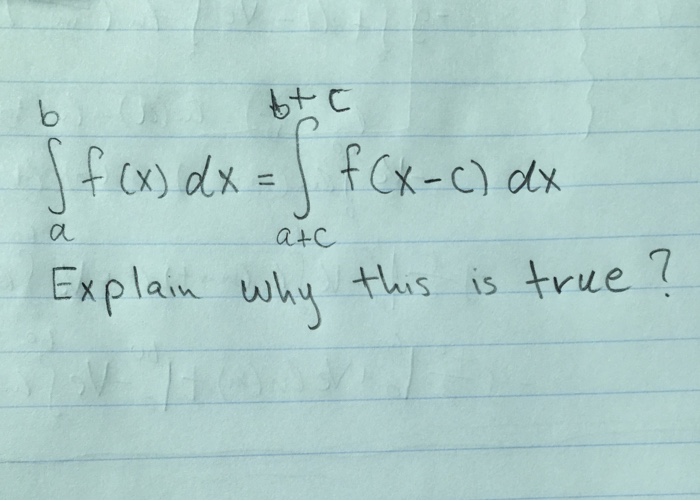 ∫_a^b f(x) dx = ∫_{a+c}^{b+c} f(x-c) dx
Explain why this is true?